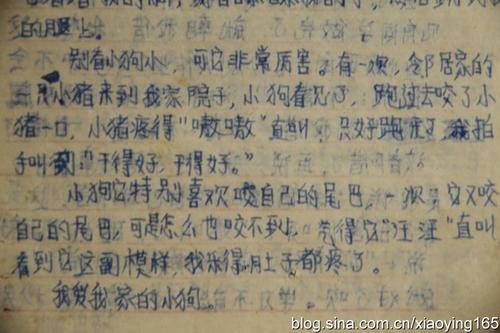 的腿上。
别看小狗小，可它非常厉害。有一次，邻居家的
只小猪来到我家院子，小狗看见了，跑过去咬了小
猪一口，小猪疼得"嗷嗷"直叫，只好跑 我拍
手叫到："干得好，干得好。"
小狗它特别喜欢咬自己的尾巴，一次它又咬
自己的尾巴，可是怎么也咬不到，得它"汪汪"直叫
看到它这副模样，我乐得肚子都疼了。
我爱我家的小狗。
blog.sina.com.cn/xiaoying165